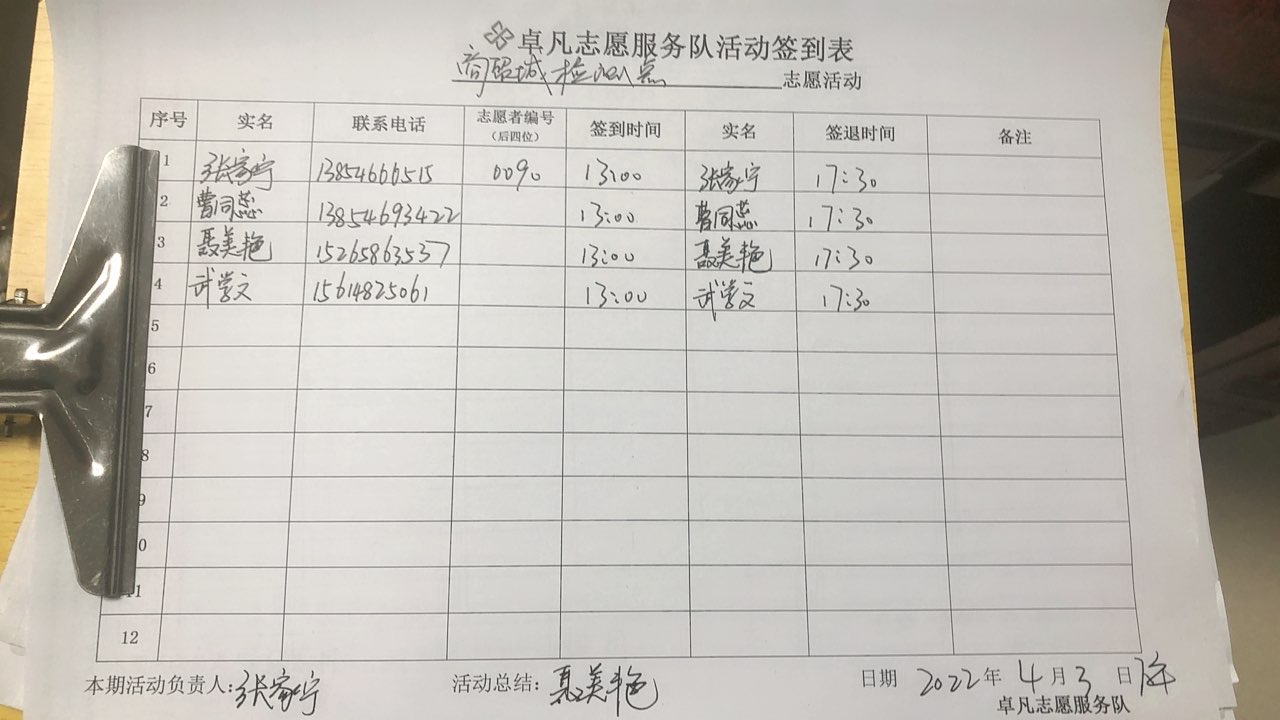 卓凡志愿服务队活动签到表
商贸城检测点 志愿活动
序号 实名 联系电话 志愿者编号(后四位) 签到时间 实名 签退时间 备注
1 张家宁 13854666515 0090 13:00 张家宁 17:30
2 曹同蕊 13854693422 13:00 曹同蕊 17:30
3 聂美艳 15265863537 13:00 聂美艳 17:30
4 武学文 15614825061 13:00 武学文 17:30
5
6
7
8
9
0
11
12
本期活动负责人:张家宁 活动总结:聂美艳 日期 2022年4月3日下午
卓凡志愿服务队